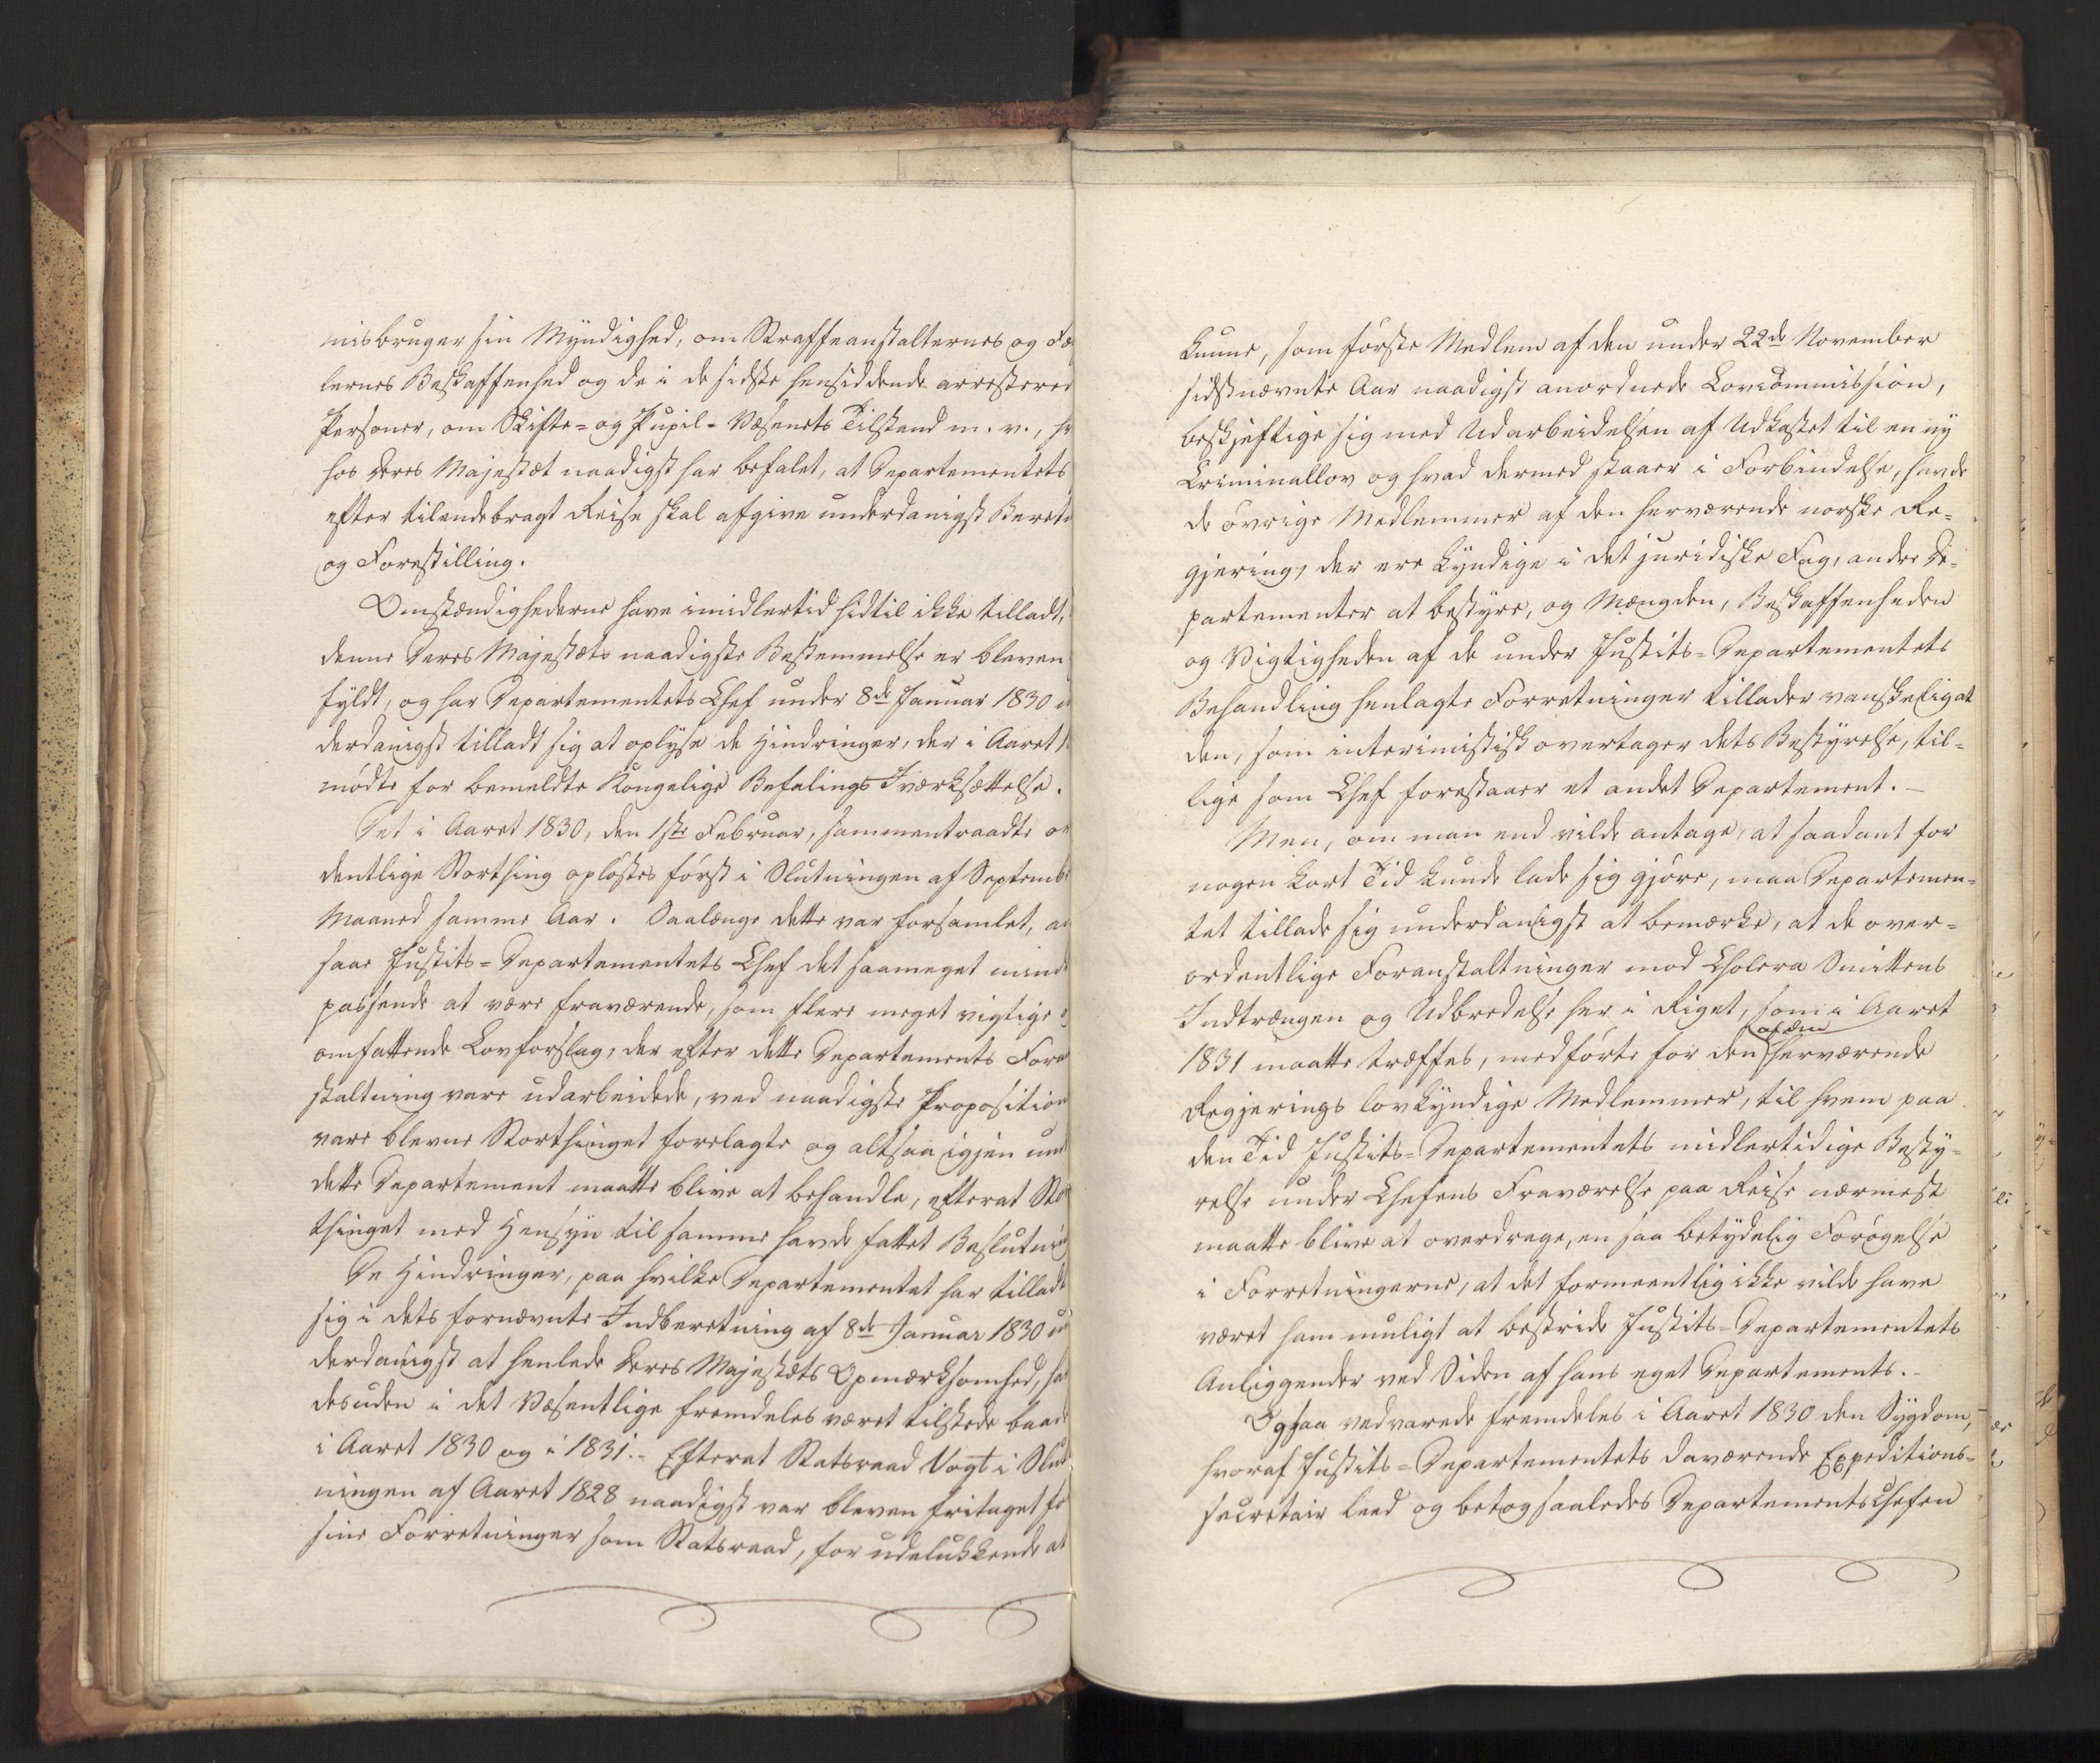 misbruger sin Myndighed, om Straffeanstalternes og Fæ
lernes Beskaffenhed og de i de sidste hensiddende arresterer
Personer, om Skifte= og Pupil-Væsenets Tilstand m. v., h
hos Deres Majestæt naadigst har befalet, at Departementets
efter tilendebragt Reise skal afgive underdanigst Beret
og Forestilling.
Omstændighederne have imidlertid hidtil ikke tilladt,
denne Deres Majestæts naadigste Bestemmelse er bleven
fyldt, og har Departementets Chef under 8de Januar 1830
derdanigst tilladt sig at oplyse de Hindringer, der i Aaret
mødte for bemeldte Kongelige Befalings Iværksættelse.
Det i Aaret 1830, den 1ste Februar, sammentraadte or
dentlige Storthing opløstes først i Slutningen af Septemb
Maaned samme Aar. Saalænge dette var forsamlet, an
saae Justits=Departementets Chef det saameget mind
passende at være fraværende, som flere meget vigtige
omfattende Lovforslag, der efter dette Departements Foran
staltning vare udarbeidede, ved naadigste Proposition
vare blevne Storthinget forelagte og altsaa igjen un
dette Departement maatte blive at behandle, efterat Sto
thinget med Hensyn til samme havde fattet Beslutni
De Hindringer, paa hvilke Departementet har tilladt
sig i dets fornævnte Indberetning af 8de Januar 1830 un
derdanigst at henlede Deres Majestæts Opmærksomhed, ha
desuden i det Væsentlige fremdeles været tilstede baad
i Aaret 1830 og i 1831.- Efterat Statsraad Vogt i Slut
ningen af Aaret 1828 naadigst var bleven fritaget fo
sine Forretninger som Statsraad, for udelukkende at
kunne, som første Medlem af den under 22de November
sidstnævnte Aar naadigst anordnede Lovcommission,
beskjeftige sig med Udarbeidelsen af Udkastet til en ny
Criminallov og hvad dermed staaer i Forbindelse, havde
de øvrige Medlemmer af den herværende norske Re-
gjering, der ere kyndige i det juridiske Fag, andre De-
partementer at bestyre, og Mængden, Beskaffenheden
og Vigtigheden af de under Justits=Departementets
Behandling henlagte Forretninger tillader vanskelig at
den, som interimistisk overtager dets Bestyrelse, til=
lige som Chef forestaaer et andet Departement. -
Men, om man end vilde antage, at saadant for
nogen kort Tid kunde lade sig gjøre, maa Departemen=
tet tillade sig underdanigst at bemærke, at de over=
ordentlige Foranstaltninger mod Cholera Smittens
Indtrængen og Udbredelse her i Riget, som i Aaret
af den
1831 maatte træffes, medførte for den herværende
Regjerings lovkyndige Medlemmer, til hvem paa
den Tid Justits=Departementets midlertidige Besty=
relse under Chefens Fraværelse paa Reise nærmest
maatte blive at overdrage, en saa betydelig Forøgelse
i Forretningerne, at det formeentlig ikke vilde have
været ham muligt at bestride Justits=Departementets
Anliggender ved Siden af hans eget Departements. -
Ogsaa vedvarede fremdeles i Aaret 1830 den Sygdom,
hvoraf Justits=Departementets daværende Expeditions=
secretair leed og betog saaledes Departementschefen